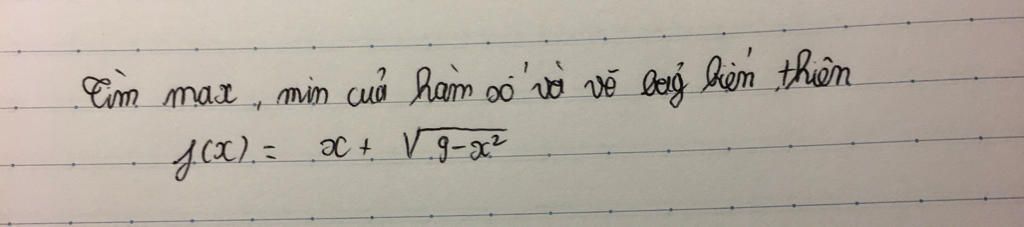 Tìm max, min của hàm số và vẽ bảng biến thiên
f(x) = x + √9-x²